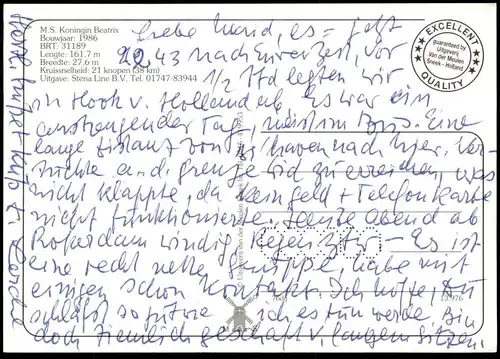 M.S. Koningin Beatrix
Bouwjaar: 1986
BRT: 31189
Lengte: 161,7 m
Breedte: 27,6 m
Kruissnelheid: 21 knopen (38 km)
Uitgave: Stena Line B.V. Tel. 01747-83944
EXCELLENT
guaranteed by
Uitgeverij
Van der Meulen
Sneek - Holland
QUALITY
Liebe, es - jetzt
22 43 nach vor
1/2 Std legten wir
in Hoek v. Holland ab. Es war ein
anstrengender Tag, meist im Bus. Eine
lange Distanz von haven nach hier. Ver-
suchte und zu erreichen, was
nicht klappte, da kein Geld + Telefonkarte
nicht funktionierte. Heute Abend ab
Roterdam windig, Regen - Es ist
eine recht nette Gruppe, habe mit
einigen schon Kontakt. Ich hoffe, Du
schläfst so gut wie ich es tun werde. Bin
doch ziemlich geschafft v. langen Sitzen.